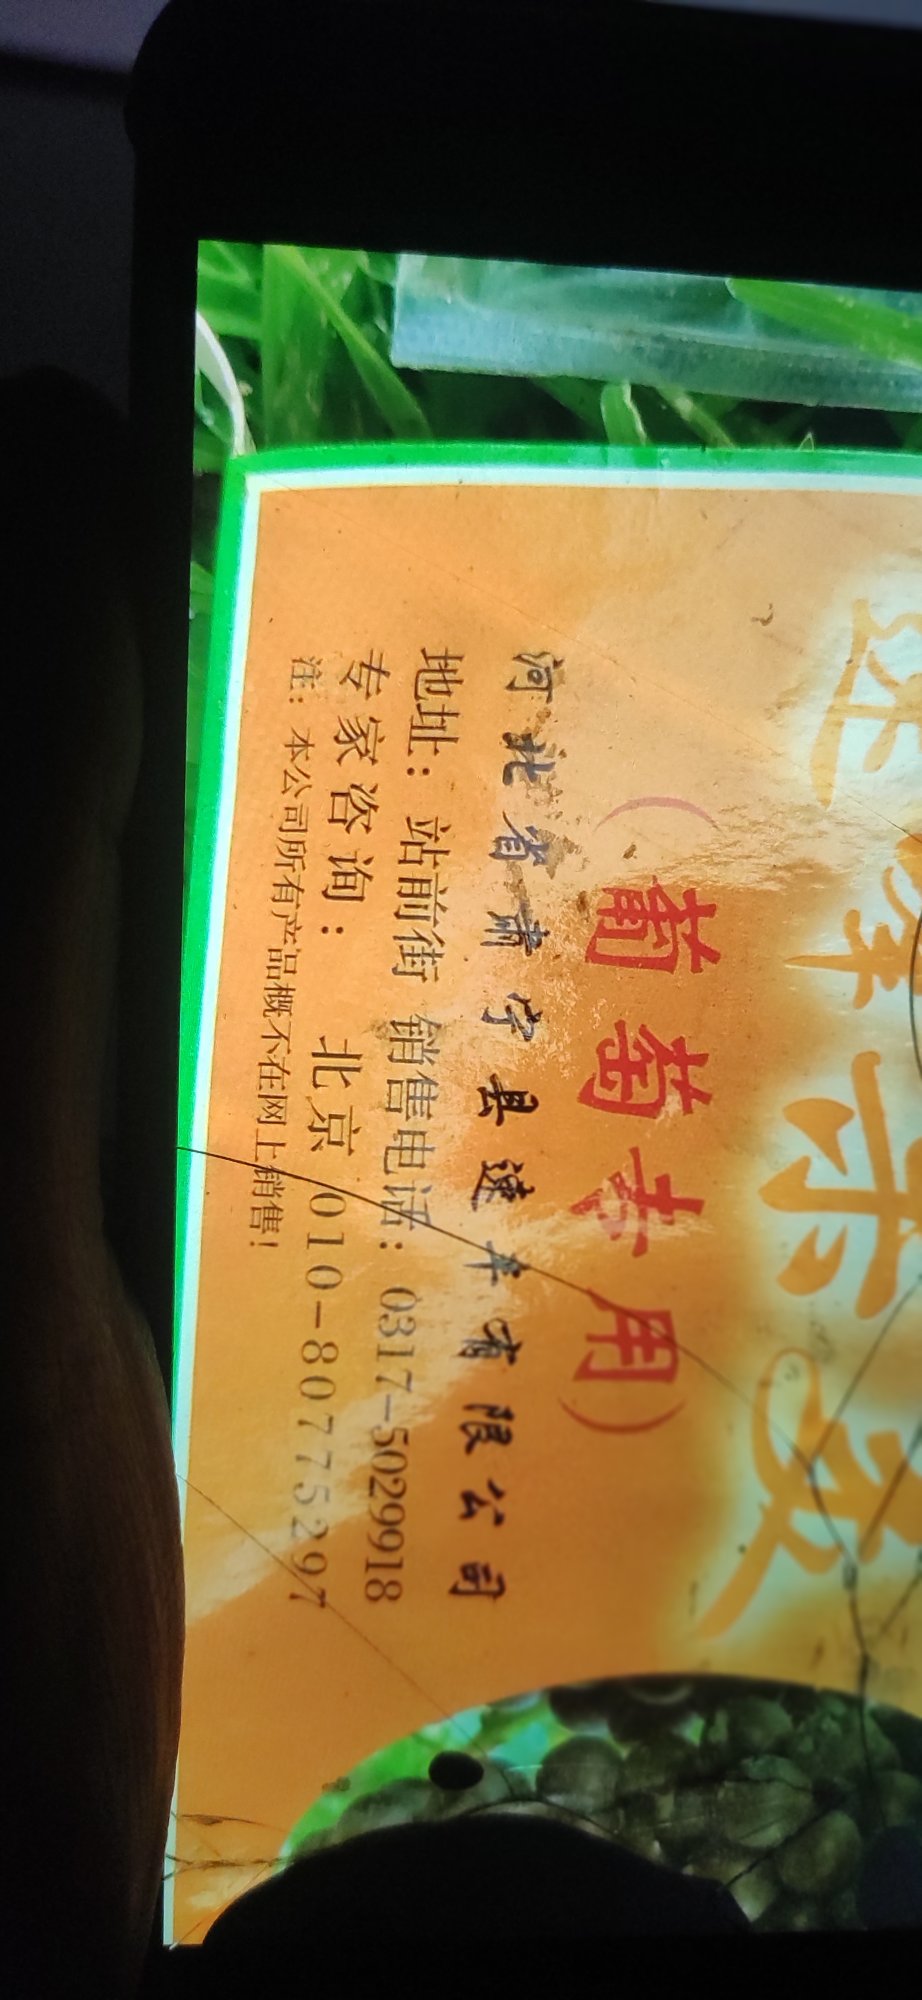 (葡萄专用)
河北省肃宁县速丰有限公司
地址：站前街 销售电话：0317-5029918
专家咨询： 北京 010-80775297
注：本公司所有产品概不在网上销售！